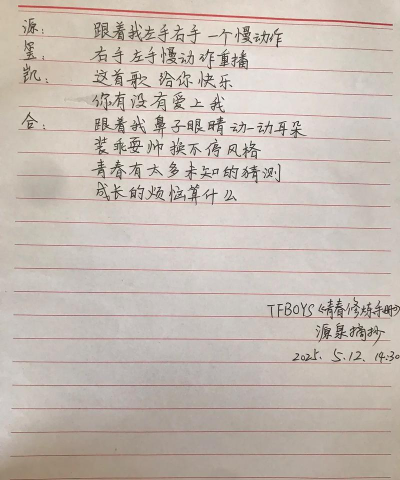 源：跟着我左手右手一个慢动作
玺：右手左手慢动作重播
凯：这首歌给你快乐
你有没有爱上我
合：跟着我鼻子眼睛动一动耳朵
装乖耍帅换不停风格
青春有太多未知的猜测
成长的烦恼算什么
TFBOYS《青春修炼手册》
源泉摘抄
2025. 5.12. 14:30